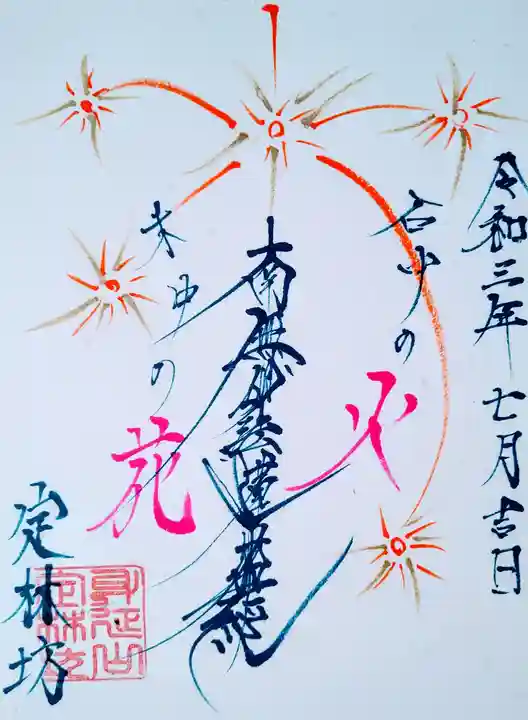 令和三年 七月吉日
石中の火
南無妙法蓮華経
木中の花
定林坊
身延山
定林坊